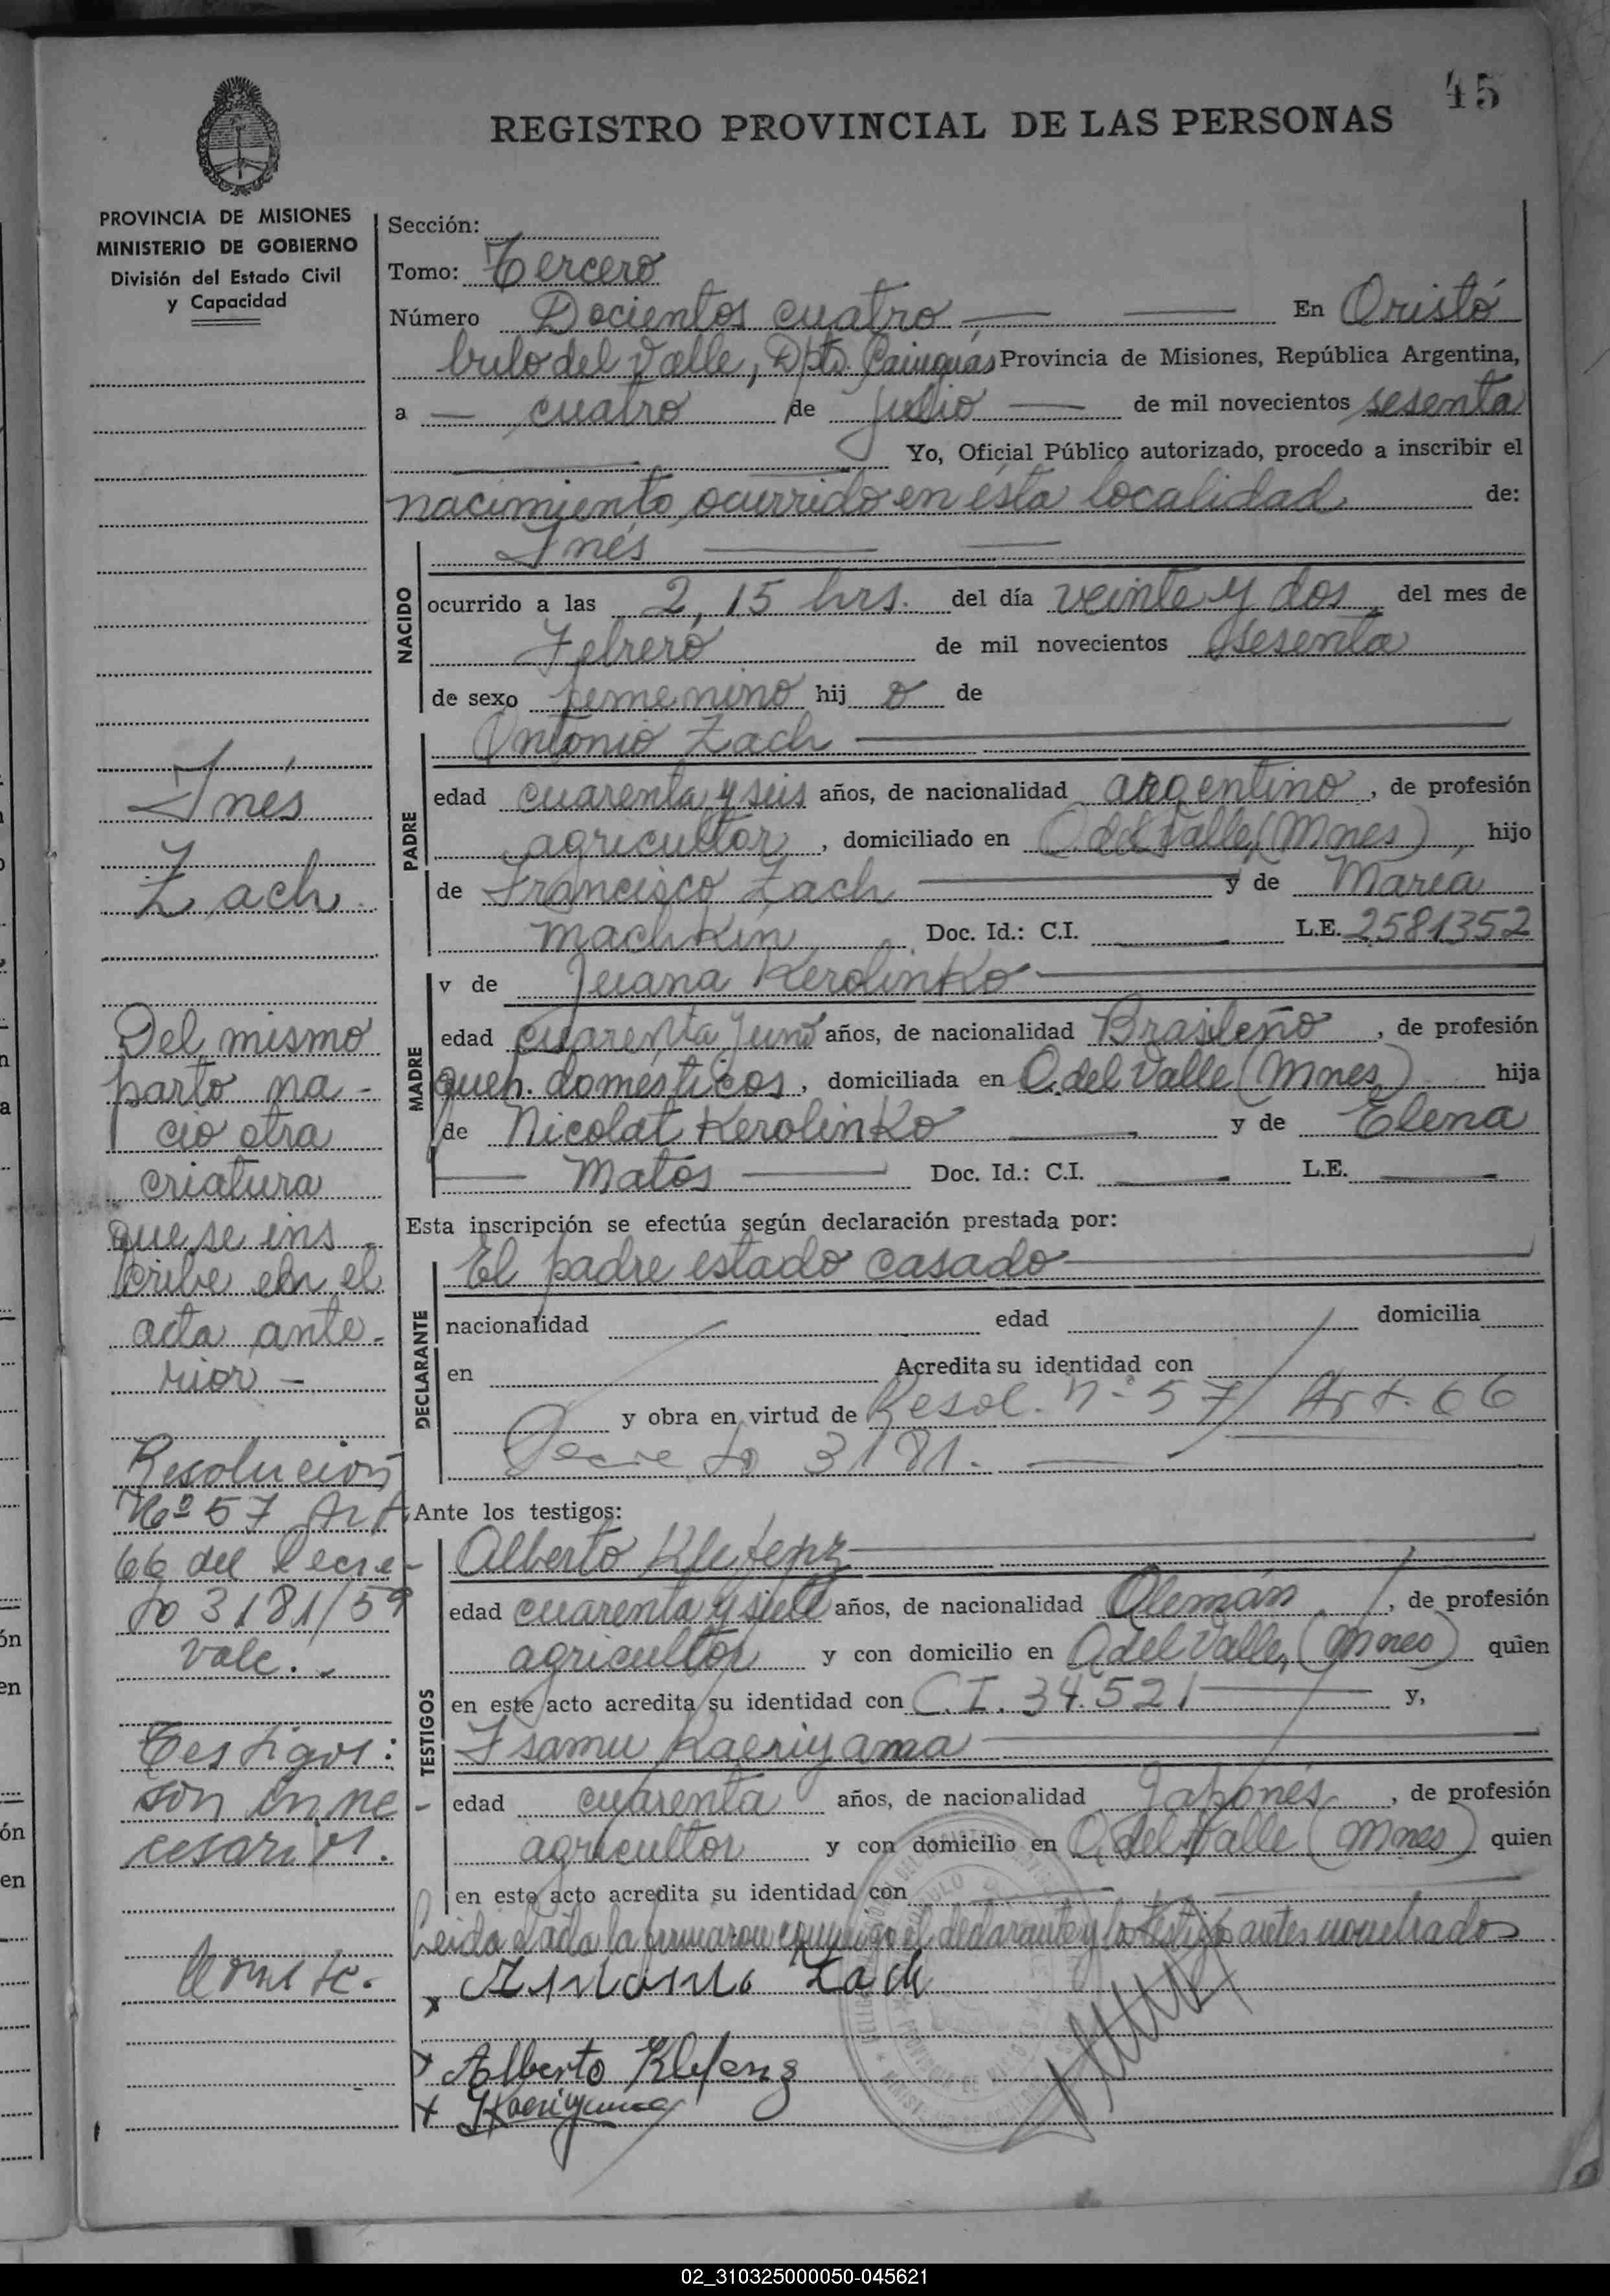 45
REGISTRO PROVINCIAL DE LAS PERSONAS
PROVINCIA DE MISIONES
MINISTERIO DE GOBIERNO
División del Estado Civil
y Capacidad
Sección:
Tomo: Tercero
Número Docientos cuatro En Oristó
bulo del Valle, Dpto. Cainguás Provincia de Misiones, República Argentina,
a cuatro de julio de mil novecientos sesenta
Yo, Oficial Público autorizado, procedo a inscribir el
nacimiento ocurrido en ésta localidad de:
NACIDO
Inés
ocurrido a las 2,15 hrs. del día veinte y dos del mes de
Febrero de mil novecientos sesenta
de sexo femenino hij o de
PADRE
Antonio Zach
edad cuarenta y seis años, de nacionalidad argentino, de profesión
agricultor, domiciliado en O. del Valle, (Mnes), hijo
de Francisco Zach y de María
Machkin Doc. Id.: C.I. L.E. 2581352
MADRE
y de Juana Kerolinko
edad cuarenta y uno años, de nacionalidad Brasileño, de profesión
queh. domésticos, domiciliada en O. del Valle (Mnes) hija
de Nicolat Kerolinko y de Elena
Matos Doc. Id.: C.I. L.E.
Esta inscripción se efectúa según declaración prestada por:
DECLARANTE
El padre estado casado
nacionalidad edad domicilia
en Acredita su identidad con
y obra en virtud de Resol. nº 57/ Art. 66
Decreto 3181.
Ante los testigos:
TESTIGOS
Alberto Klefenz
edad cuarenta y siete años, de nacionalidad Alemán, de profesión
agricultor y con domicilio en A del Valle, (Mnes) quien
en este acto acredita su identidad con C.I. 34.521 y,
Isamu Kaeriyama
edad cuarenta años, de nacionalidad Japonés, de profesión
agricultor y con domicilio en A. del Valle (Mnes) quien
en este acto acredita su identidad con
Leida el acta la firmaron conmigo el declarante y los testigos antes nombrados
x Antonio Zach
x Alberto Klefenz
x IKaeriyama
Inés
Zach
Del mismo
parto na-
cio otra
criatura
que se ins
cribe en el
acta ante-
rior-
Resolución
Nº 57 Art
66 del Decre-
to 3181/59
vale.
Testigos:
son inne-
cesarios.
02_310325000050-045621